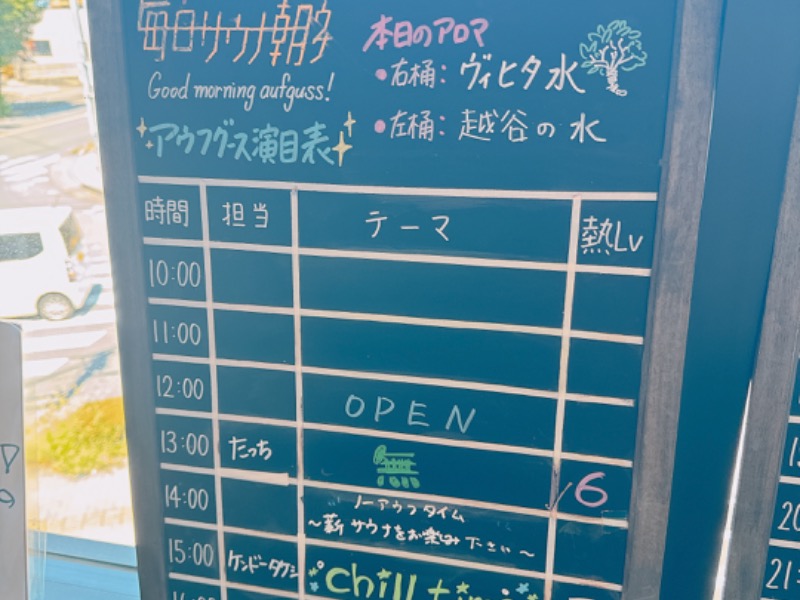 毎日サウナ朝夕
Good morning aufguss!
アウフグース演目表
本日のアロマ
・右桶: ヴィヒタ水
・左桶: 越谷の水
時間 担当 テーマ 熱Lv
10:00
11:00
12:00 OPEN
13:00 たっち 無 6
14:00 ノーアウフタイム
～薪サウナをお楽しみ下さい～
15:00 ケンドータクシ chill time
20
21: